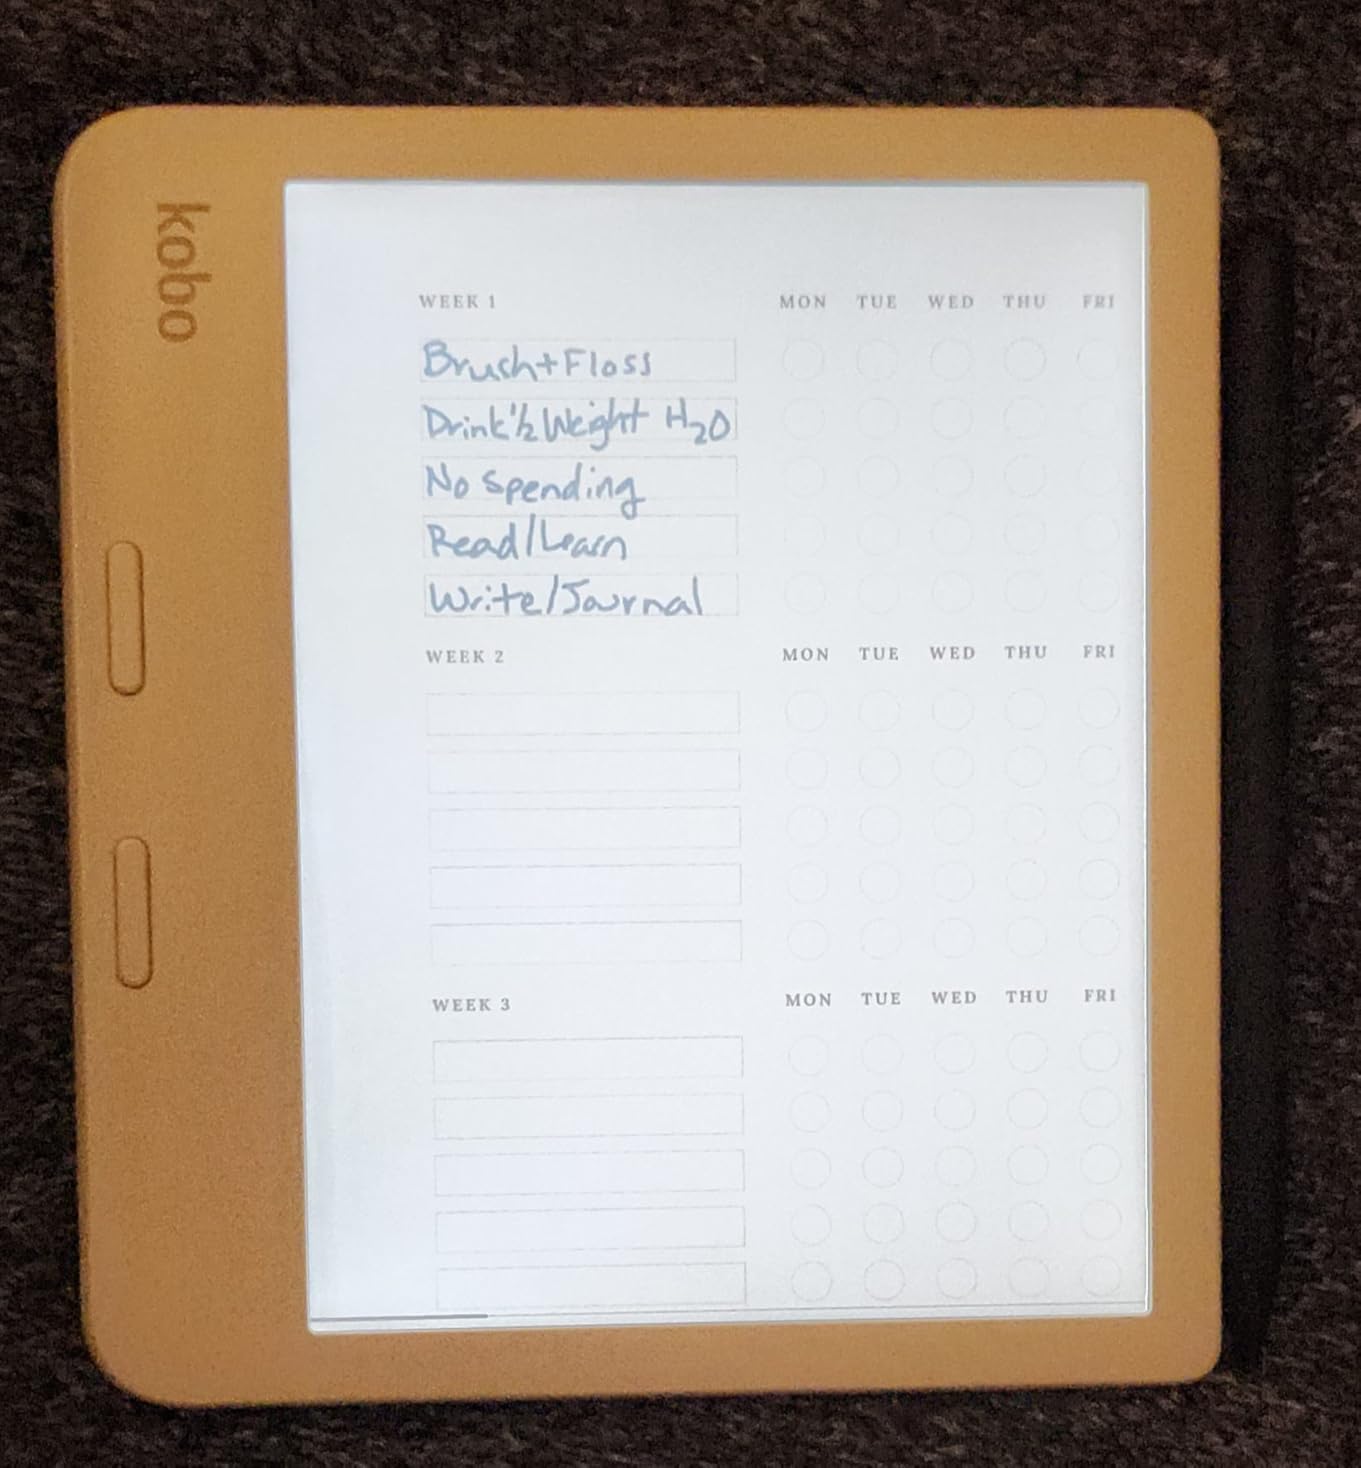 kobo
WEEK 1 MON TUE WED THU FRI
Brush+Floss
Drink ½ Weight H₂O
No Spending
Read/Learn
Write/Journal
WEEK 2 MON TUE WED THU FRI
WEEK 3 MON TUE WED THU FRI